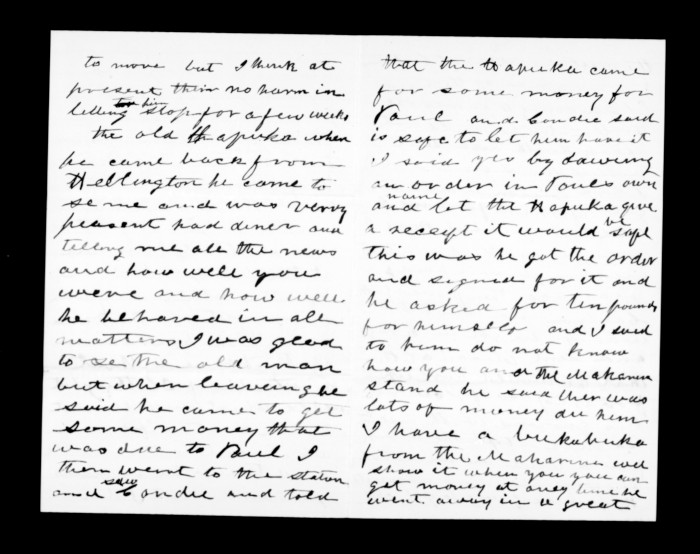 to move but I think at
present thir no harm in
letting him stop for a few weeks
the old Hapuka when
he came back from
Wellington he came to
se me and was verry
pleasent had diner and
telling me all the news
and how well you
were and how well
he behaved in all
matters, I was glad
to se the old man
but when leaveing he
said he came to get
some money that
was due to Paul I
then went to the station
and saw Condie and told
that the Hapuka came
for some money for
Paul and Condie said
is safe to let him have it
I said yes by dawing
an order in Pouls own
name and let the Hapuka give
a receipt it would be safe
this was he got the order
and signed for it and
he asked for ten pounds
for himself and I said
to him do not know
how you and the Makarini
stand he said ther was
lots of money due him
I have a bukabuka
from the Makarini will
show it when you you can
get money at aney time he
went away in a great